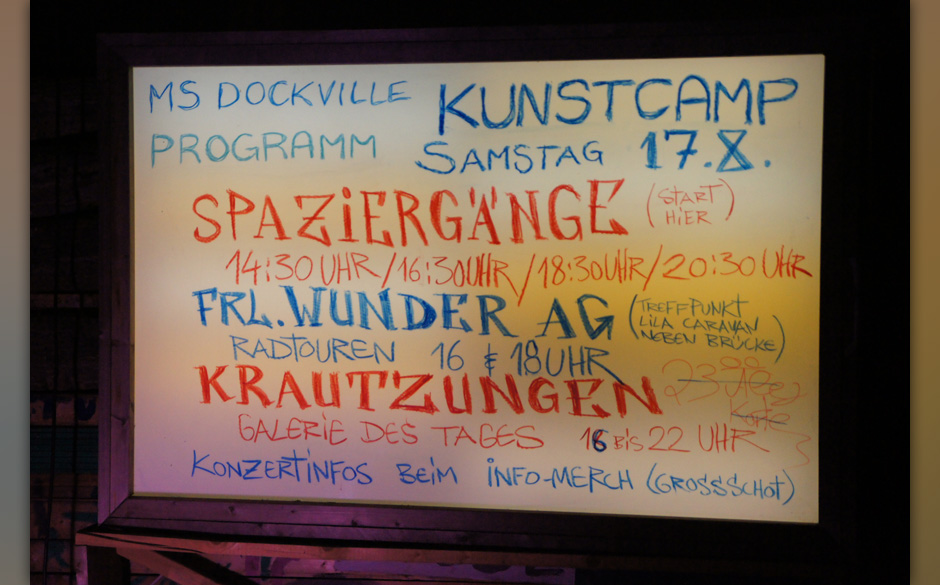 MS DOCKVILLE KUNSTCAMP
PROGRAMM SAMSTAG 17.8.
SPAZIERGÄNGE (START HIER)
14:30 UHR/16:30UHR/18:30UHR/20:30 UHR
FRL. WUNDER AG (TREFFPUNKT LILA CARAVAN NEBEN BRÜCKE)
RADTOUREN 16 & 18 UHR
KRAUTZUNGEN
GALERIE DES TAGES 16 BIS 22 UHR
KONZERTINFOS BEIM INFO-MERCH (GROSSSCHOT)